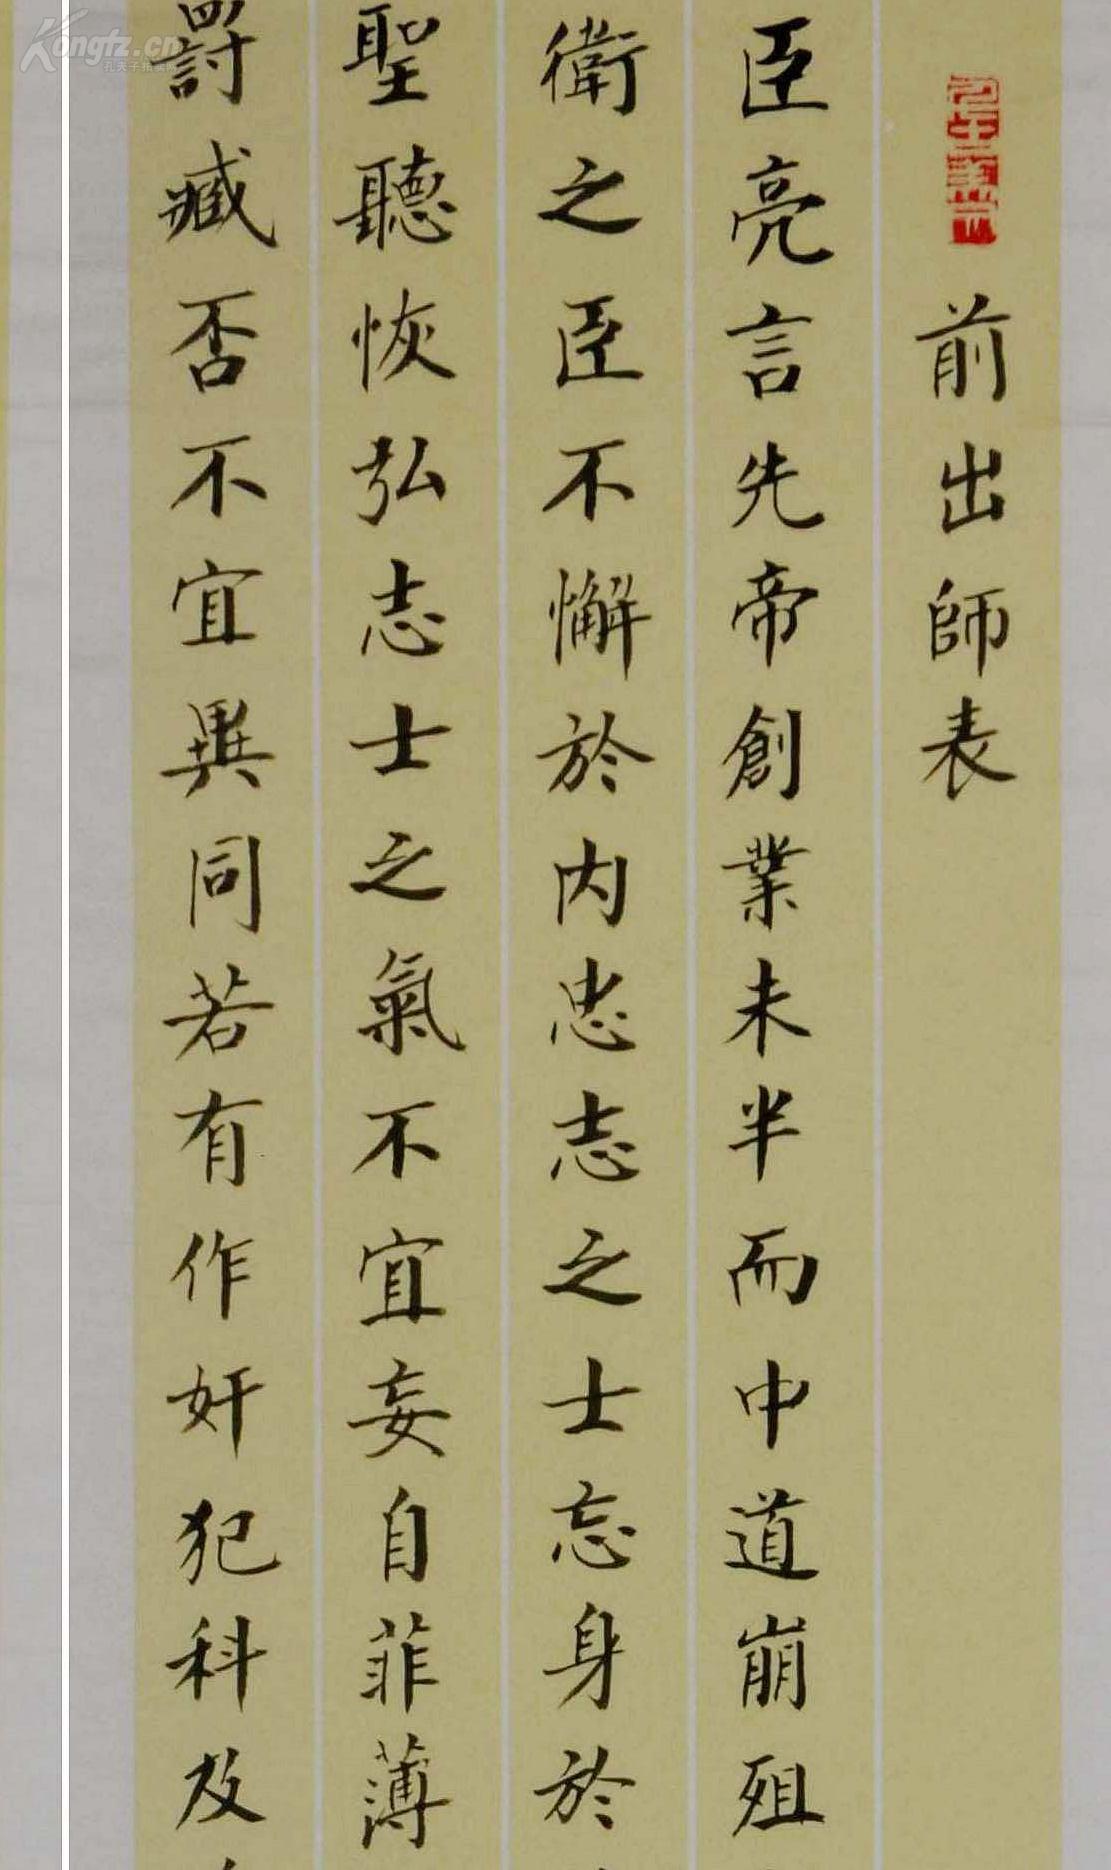 前出師表
臣亮言先帝創業未半而中道崩殂
衛之臣不懈於内忠志之士忘身於
聖聽恢弘志士之氣不宜妄自菲薄
罰臧否不宜異同若有作奸犯科及
Kongfz.cn